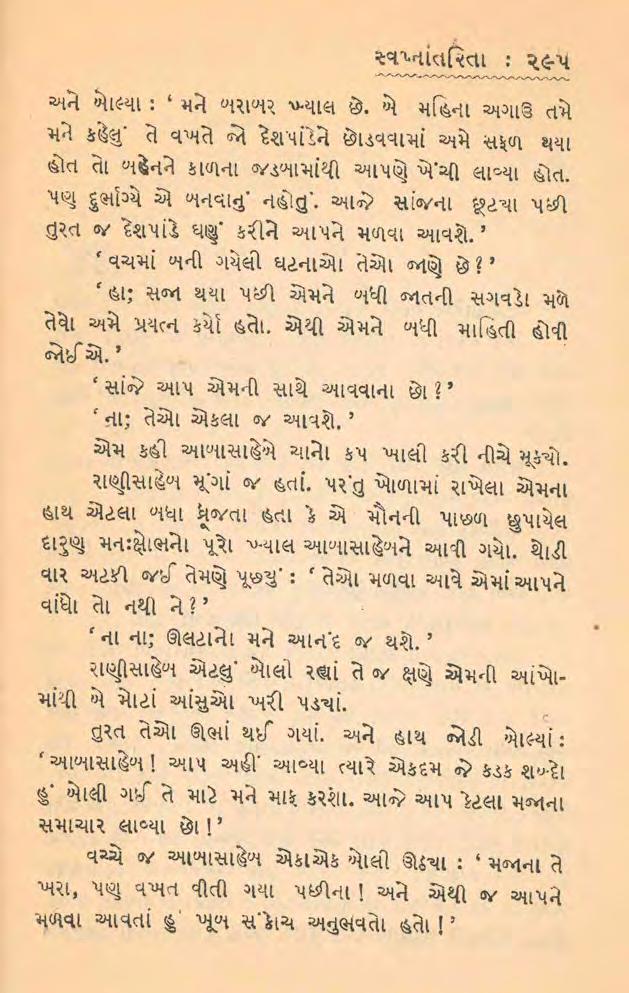 સ્વપ્નાંતરિતા : ૨૯૫
અને બોલ્યા : ‘ મને બરાબર ખ્યાલ છે. બે મહિના અગાઉ તમે
મને કહેલું તે વખતે જો દેશપાંડેને છોડવવામાં અમે સફળ થયા
હોત તો બહેનને કાળના જડબામાંથી આપણે ખેંચી લાવ્યા હોત.
પણ દુર્ભાગ્યે એ બનવાનું નહોતું. આજે સાંજના છૂટયા પછી
તુરત જ દેશપાંડે ઘણું કરીને આપને મળવા આવશે. ’
‘ વચમાં બની ગયેલી ઘટનાઓ તેઓ જાણે છે ? ’
‘ હા; સજા થયા પછી એમને બધી જાતની સગવડો મળે
તેવો અમે પ્રયત્ન કર્યો હતો. એથી એમને બધી માહિતી હોવી
જોઈએ. ’
‘ સાંજે આપ એમની સાથે આવવાના છો ? ’
‘ ના; તેઓ એકલા જ આવશે. ’
એમ કહી આબાસાહેબે ચાનો કપ ખાલી કરી નીચે મૂક્યો.
રાણીસાહેબ મૂંગાં જ હતાં. પરંતુ ખોળામાં રાખેલા એમના
હાથ એટલા બધા ધ્રૂજતા હતા કે એ મૌનની પાછળ છુપાયેલ
દારુણ મનઃક્ષોભનો પૂરો ખ્યાલ આબાસાહેબને આવી ગયો. થોડી
વાર અટકી જઈ તેમણે પૂછયું : ‘ તેઓ મળવા આવે એમાં આપને
વાંધો તો નથી ને ? ’
‘ ના ના; ઊલટાનો મને આનંદ જ થશે. ’
રાણીસાહેબ એટલું બોલી રહ્યાં તે જ ક્ષણે એમની આંખો-
માંથી બે મોટાં આંસુઓ ખરી પડયાં.
તુરત તેઓ ઊભાં થઈ ગયાં. અને હાથ જોડી બોલ્યાં :
‘ આબાસાહેબ ! આપ અહીં આવ્યા ત્યારે એકદમ જે કડક શબ્દો
હું બોલી ગઈ તે માટે મને માફ કરશો. આજે આપ કેટલા મજાના
સમાચાર લાવ્યા છો ! ’
વચ્ચે જ આબાસાહેબ એકાએક બોલી ઊઠયા : ‘ મજાના તે
ખરા, પણ વખત વીતી ગયા પછીના ! અને એથી જ આપને
મળવા આવતાં હું ખૂબ સંકોચ અનુભવતો હતો ! ’